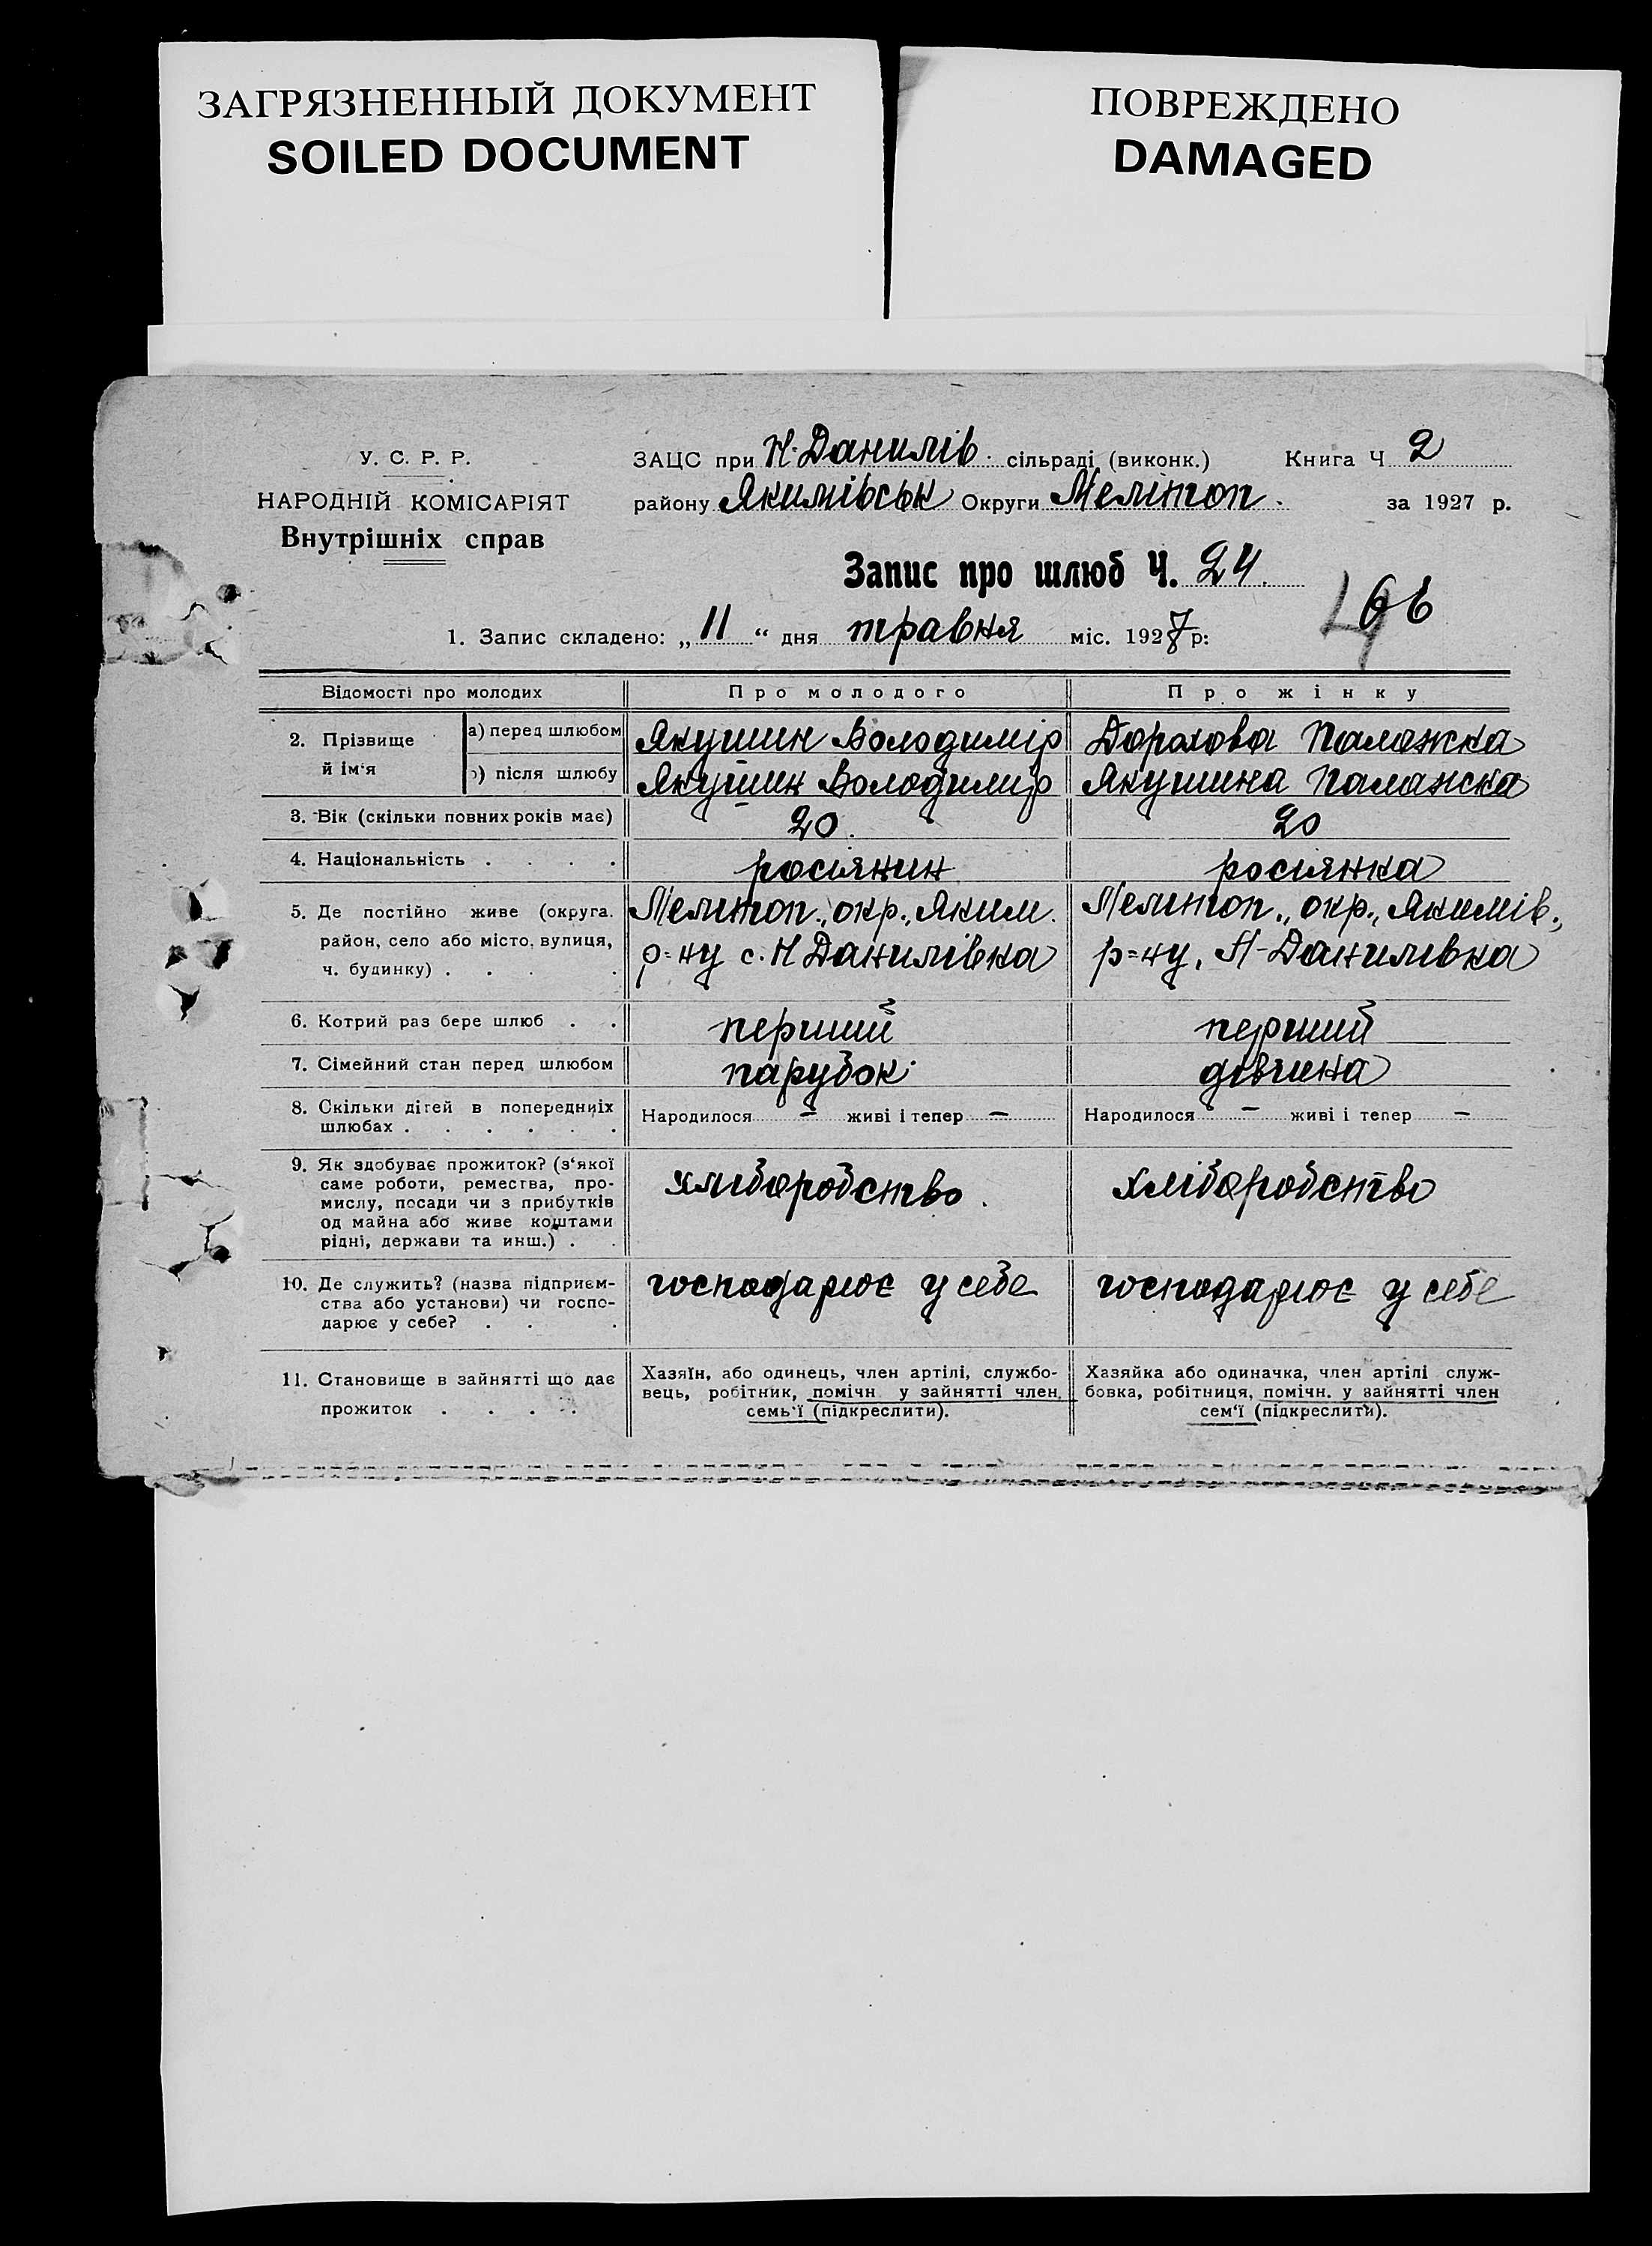 ЗАГРЯЗНЕННЫЙ ДОКУМЕНТ
SOILED DOCUMENT
ПОВРЕЖДЕНО
DAMAGED
У. С. Р. Р.
НАРОДНІЙ КОМІСАРІЯТ
Внутрішніх справ
ЗАЦС при Н-Данилів. сільраді (виконк.) Книга Ч 2
району Якимівськ Округи Мелітоп. за 1927 р.
Запис про шлюб Ч. 24.
66
1. Запис складено: „ 11 “ дня травня міс. 1927 р:
Відомості про молодих
Про молодого
Про жінку
2. Прізвище й ім‘я
а) перед шлюбом Якушин Володимір Дорохова Паламжка
б) після шлюбу Якушин Володимір Якушина Паламжка
3. Вік (скільки повних років має) 20. 20
4. Національність . . . . росіянин росіянка
5. Де постійно живе (округа. Мелитоп., окр., Яким. Мелитоп., окр., Якимів.,
район, село або місто, вулиця, р=ну с. Н Данилівка р=ну, Н-Данилівка
ч. будинку) . . . .
6. Котрий раз бере шлюб . . перший перший
7. Сімейний стан перед шлюбом парубок. дівчина
8. Скільки дітей в попередніх Народилося – живі і тепер – Народилося – живі і тепер –
шлюбах . . . . . .
9. Як здобуває прожиток? (з‘якої хліборобство. хліборобство
саме роботи, ремества, про-
мислу, посади чи з прибутків
од майна або живе коштами
рідні, держави та инш.) . .
10. Де служить? (назва підприєм- господарює у себе господарює у себе
ства або установи) чи госпо-
дарює у себе? . . .
11. Становище в зайнятті що дає Хазяїн, або одинець, член артілі, службо- Хазяйка або одиначка, член артілі служ-
прожиток . . . . вець, робітник, помічн у зайнятті член, бовка, робітниця, помічн. у зайнятті член
семь‘ї (підкреслити). сем‘ї (підкреслити).